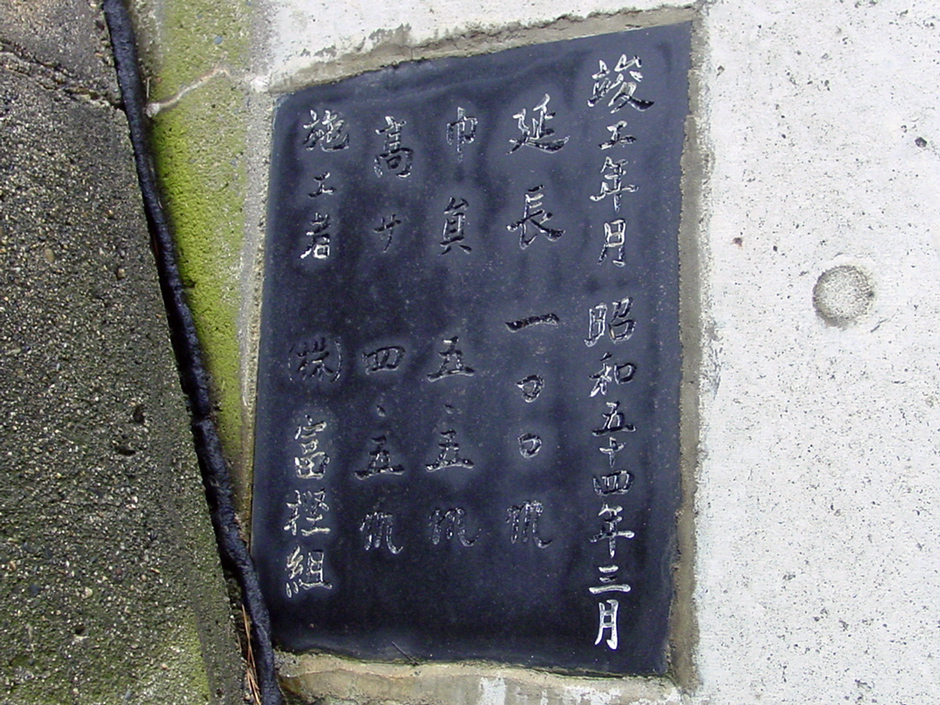 竣工年月 昭和五十四年三月
延長 一〇〇m
巾員 五、五m
高サ 四、五m
施工者 (株)富樫組